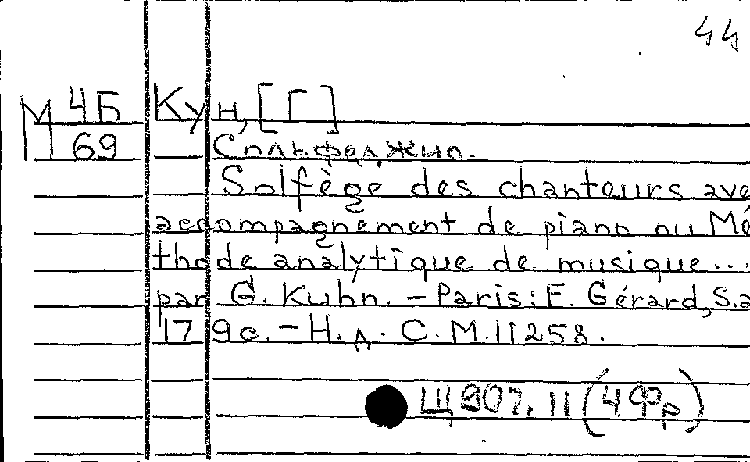 44
М 4Б Кун, [Г]
69 Сольфеджио.
Solfège des chanteurs ave
accompagnement de piano ou Mé
thode analytique de musique...
par G. Kuhn. - Paris: E. Gérard, S.a
179с. - Н. д. C. M. 11258.
Щ 907. II (4 Фр)